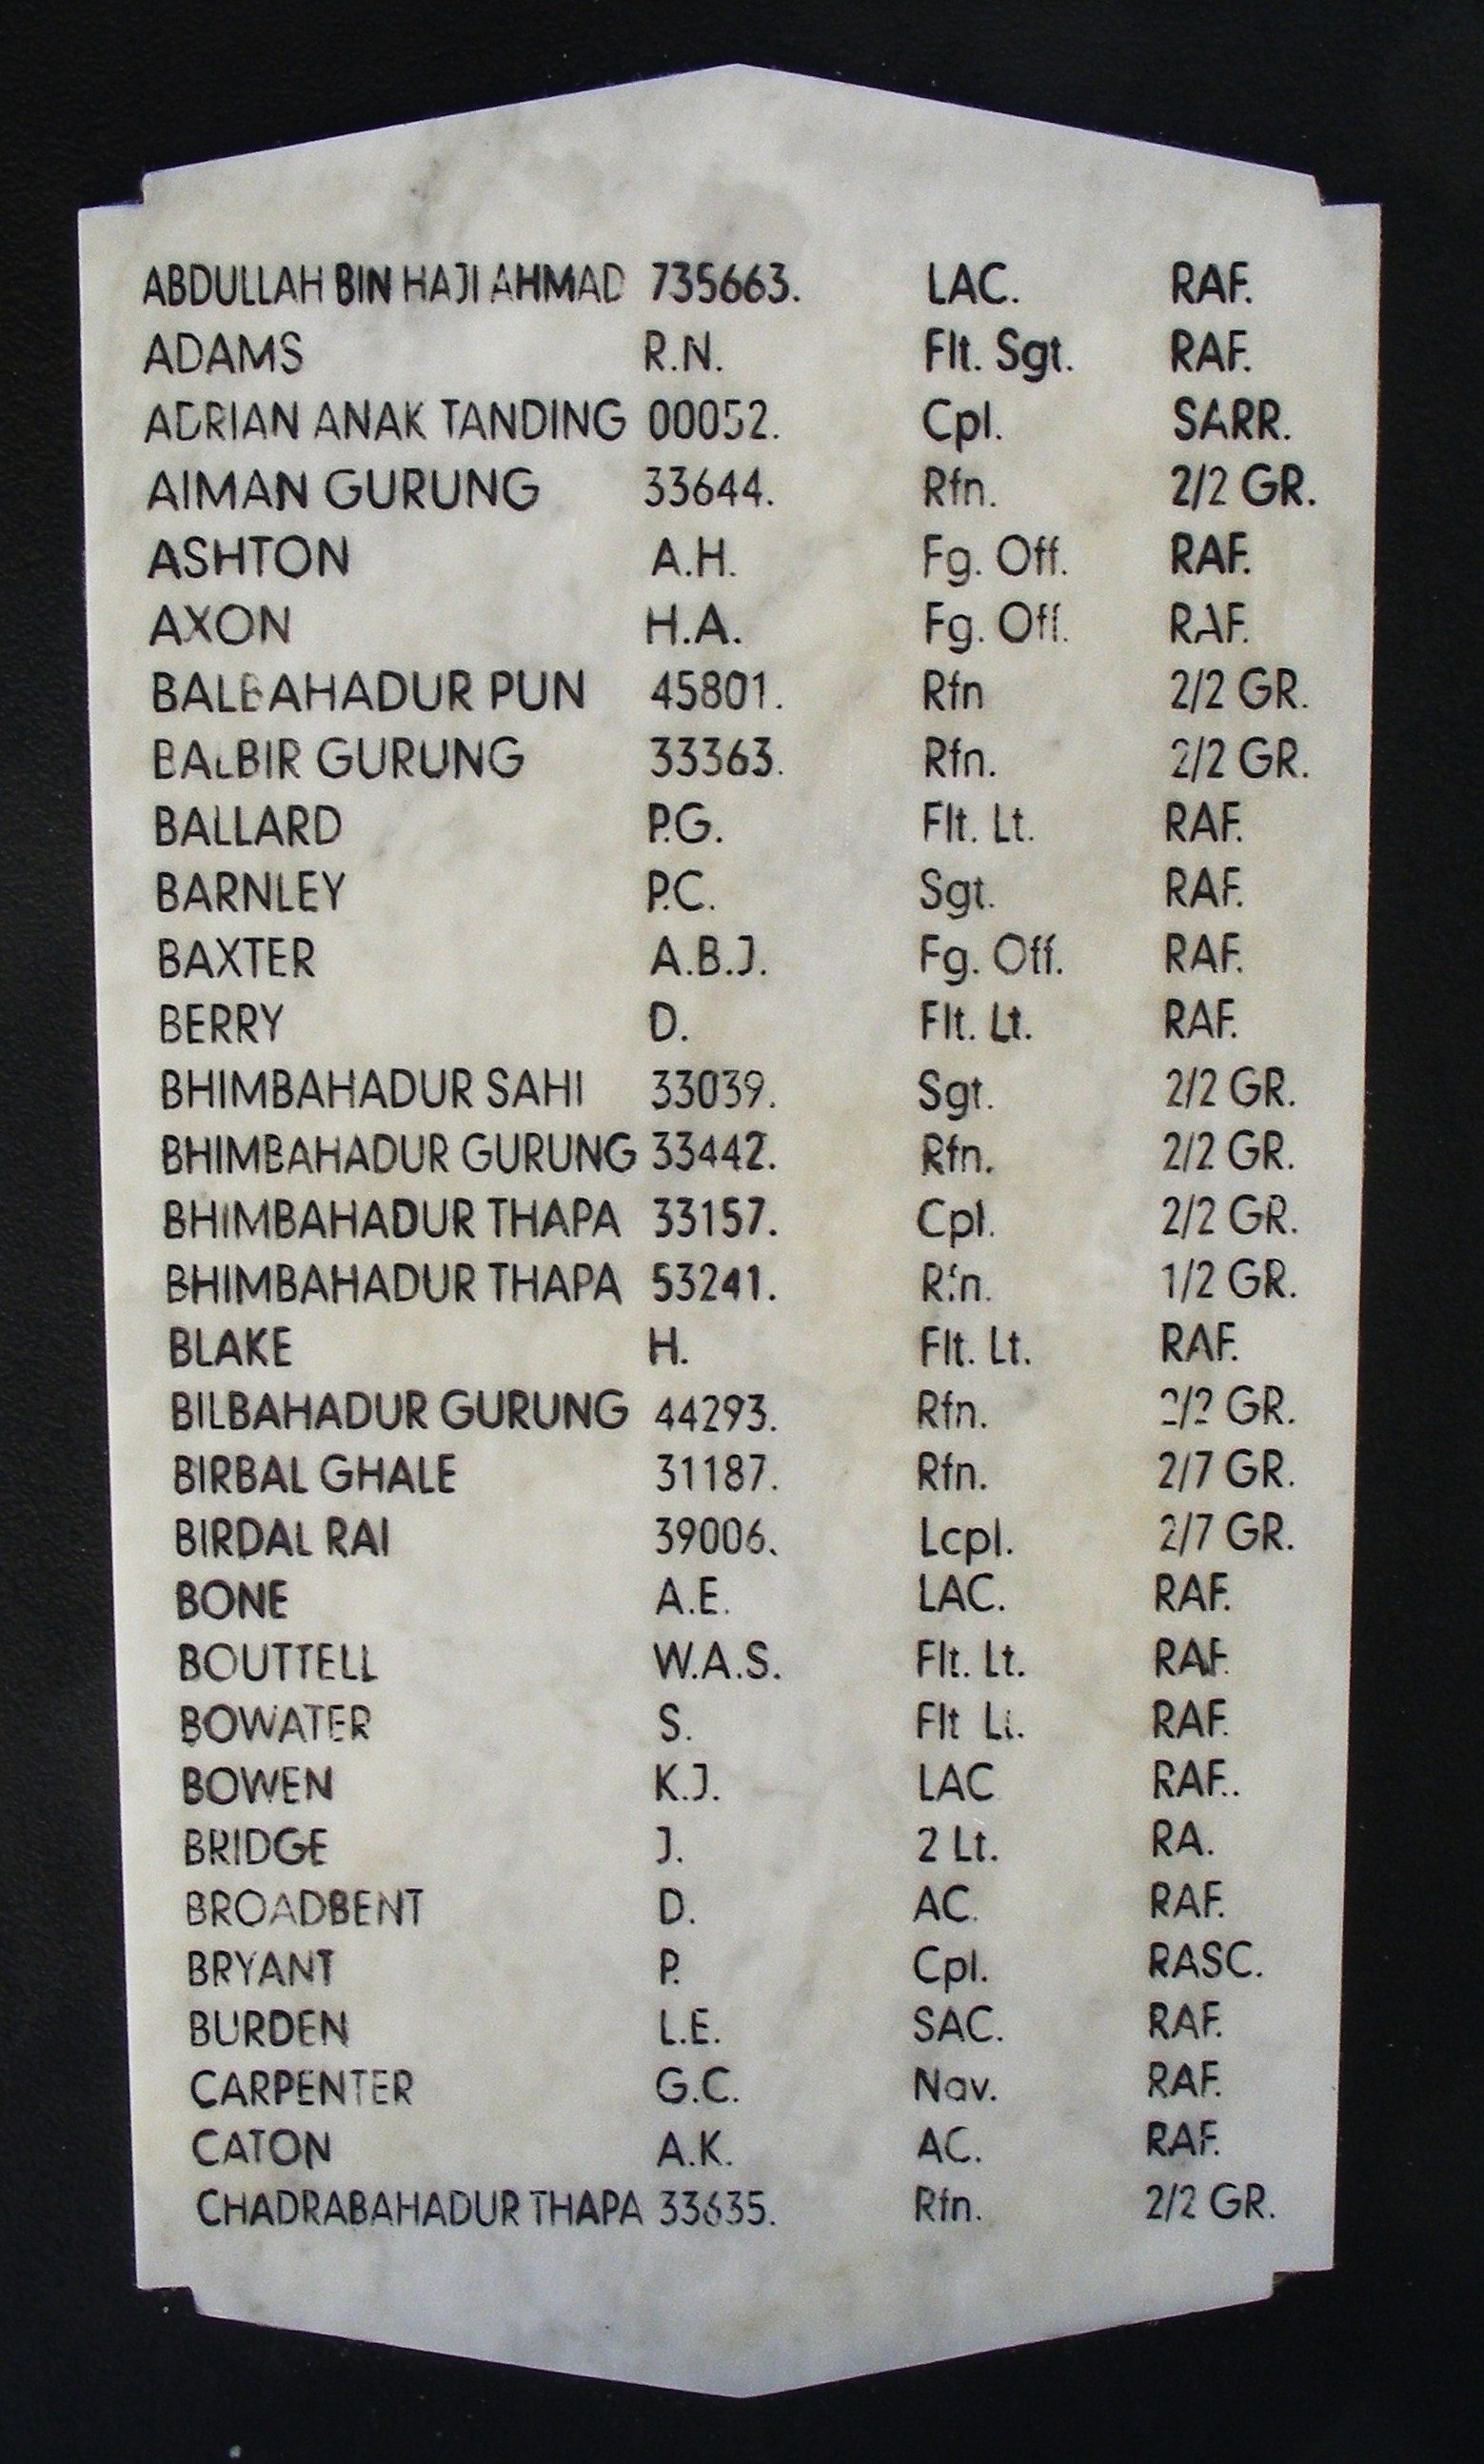 ABDULLAH BIN HAJI AHMAD 735663. LAC. RAF.
ADAMS R.N. Flt. Sgt. RAF.
ADRIAN ANAK TANDING 00052. Cpl. SARR.
AIMAN GURUNG 33644. Rfn. 2/2 GR.
ASHTON A.H. Fg. Off. RAF.
AXON H.A. Fg. Off. RAF.
BALBAHADUR PUN 45801. Rfn 2/2 GR.
BALBIR GURUNG 33363. Rfn. 2/2 GR.
BALLARD P.G. Flt. Lt. RAF.
BARNLEY P.C. Sgt. RAF.
BAXTER A.B.J. Fg. Off. RAF.
BERRY D. Flt. Lt. RAF.
BHIMBAHADUR SAHI 33039. Sgt. 2/2 GR.
BHIMBAHADUR GURUNG 33442. Rfn. 2/2 GR.
BHIMBAHADUR THAPA 33157. Cpl. 2/2 GR.
BHIMBAHADUR THAPA 53241. Rfn. 1/2 GR.
BLAKE H. Flt. Lt. RAF.
BILBAHADUR GURUNG 44293. Rfn. 2/2 GR.
BIRBAL GHALE 31187. Rfn. 2/7 GR.
BIRDAL RAI 39006. Lcpl. 2/7 GR.
BONE A.E. LAC. RAF.
BOUTTELL W.A.S. Flt. Lt. RAF.
BOWATER S. Flt Lt. RAF.
BOWEN K.J. LAC RAF..
BRIDGE J. 2 Lt. RA.
BROADBENT D. AC. RAF.
BRYANT P. Cpl. RASC.
BURDEN L.E. SAC. RAF.
CARPENTER G.C. Nav. RAF.
CATON A.K. AC. RAF.
CHADRABAHADUR THAPA 33635. Rfn. 2/2 GR.